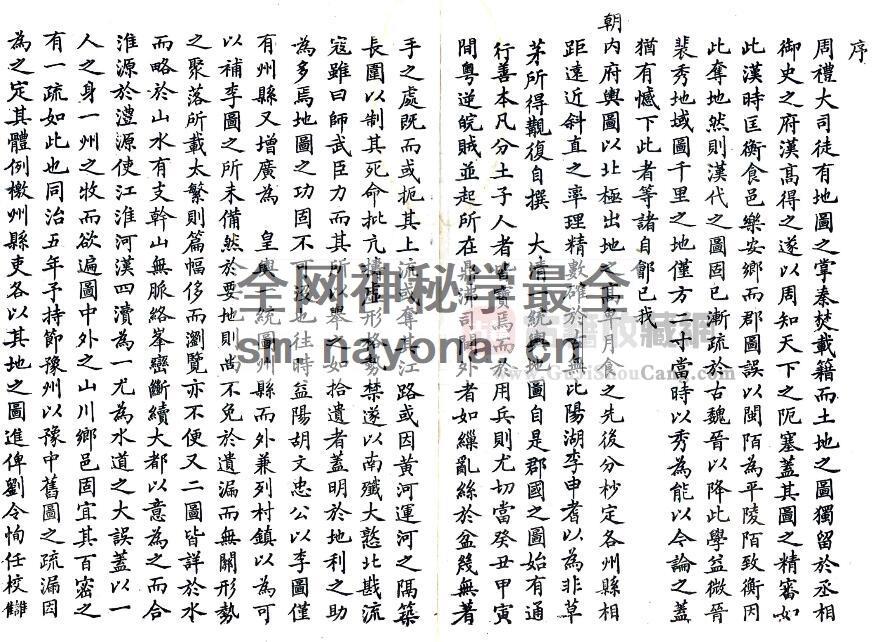 序
周禮大司徒有地圖之掌秦焚載籍而土地之圖獨留於丞相
御史之府漢髙得之遂以周知天下之阨塞蓋其圖之精審如
此漢時匡衡食邑樂安鄉而郡圖誤以閩陌為平陵陌致衡因
此奪地然則漢代之圖固已漸疏於古魏晉以降此學益微晉
裴秀地域圖千里之地僅方二寸當時以秀為能以今論之蓋
猶有憾下此者等諸自鄶已我
朝内府輿圖以北極出地之髙卑月食之先後分杪定各州縣相
距逺近斜直之率理精數確於古無比陽湖李申耆以為非草
茅所得觀復自撰 大清一統輿地圖自是郡國之圖始有通
行善本凡分土子人者皆寶焉而於用兵則尤切當癸丑甲寅
間粵逆皖賊並起所在鼎沸司閫外者如繅亂絲於盆幾無著
手之處既而或扼其上流或奪其江路或因黄河運河之隔築
長圍以制其死命批亢擣虛形格勢禁遂以南殲大憝北戡流
寇雖曰師武臣力而其所以舉之如拾遺者蓋明於地利之助
為多焉地圖之功固不可沒也往時益陽胡文忠公以李圖僅
有州縣又增廣為 皇輿一統圖州縣而外兼列村鎮以為可
以補李圖之所未備然於要地則尚不免於遺漏而無關形勢
之聚落所載太繁則篇幅侈而瀏覽亦不便又二圖皆詳於水
而略於山水有支幹山無脈絡峯巒斷續大都以意為之而合
淮源於澧源使江淮河漢四瀆為一尤為水道之大誤蓋以一
人之身一州之牧而欲遍圖中外之山川鄉邑固宜其百密之
有一疏如此也同治五年予持節豫州以豫中舊圖之疏漏因
為之定其體例檄州縣吏各以其地之圖進俾劉令恂任校讎
全网神秘学最全
sm.nayona.cn
www.GujiShouCang.com